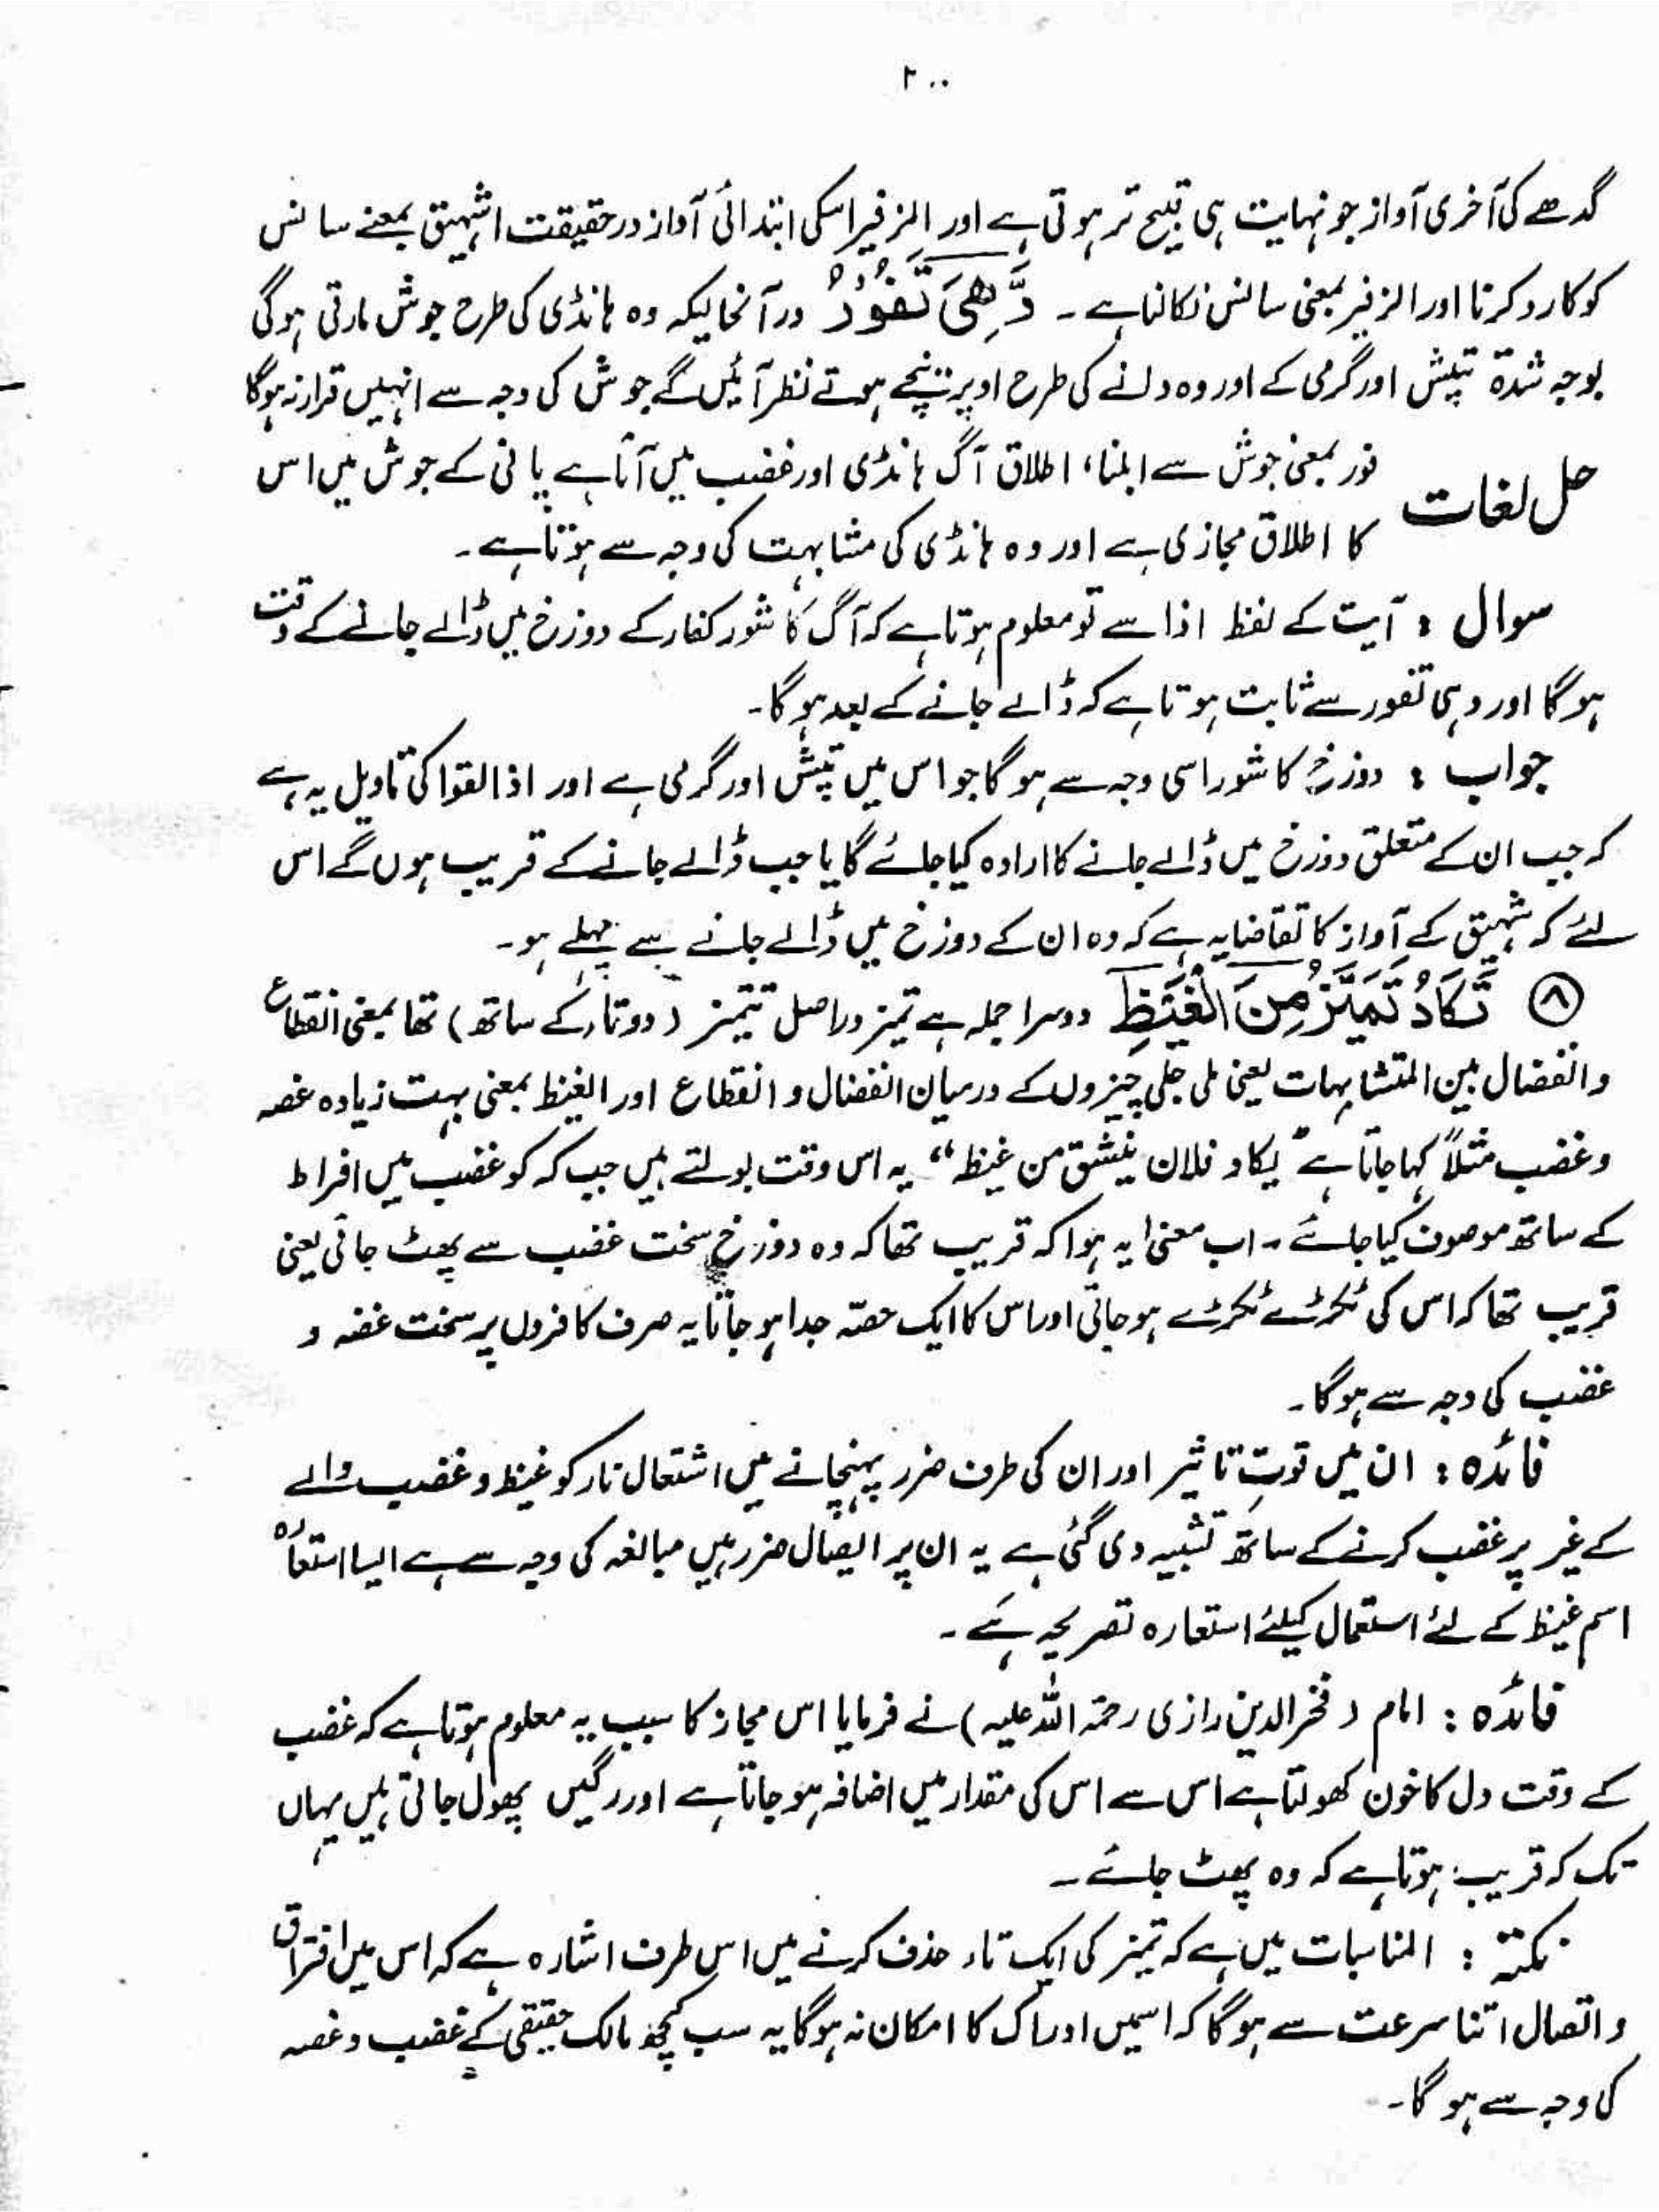 ۲۰۰
گدھے کی آخری آواز جو نہایت ہی قبیح تر ہوتی ہے اور الزفیر اسکی ابتدائی آواز درحقیقت الشہیق بمعنے سانس
کو کا رد کرنا اور الزفیر بمعنی سانس نکالنا ہے ۔ وَّهِیَ تَفُوْرُ درآنحالیکہ وہ ہانڈی کی طرح جوش مارتی ہوگی
بوجہ شدۃ تپیش اور گرمی کے اور وہ دانے کی طرح اوپر نیچے ہوتے نظر آئیں گے جوش کی وجہ سے انہیں قرار نہ ہوگا
حل لغات فور بمعنی جوش سے ابلنا، اطلاق آگ ہانڈی اور غضب میں آتا ہے پانی کے جوش میں اس
کا اطلاق مجازی ہے اور وہ ہانڈی کی مشابہت کی وجہ سے ہوتا ہے ۔
سوال : آیت کے لفظ اذا سے تو معلوم ہوتا ہے کہ آگ کا شور کفار کے دوزخ میں ڈالے جانے کے وقت
ہوگا اور وہی تفور سے ثابت ہوتا ہے کہ ڈالے جانے کے بعد ہوگا ۔
جواب : دوزخ کا شور اسی وجہ سے ہوگا جو اس میں تپش اور گرمی ہے اور اذا القوا کی تاویل یہ ہے
کہ جب ان کے متعلق دوزخ میں ڈالے جانے کا ارادہ کیا جائے گا یا جب ڈالے جانے کے قریب ہوں گے اس
لئے کہ شہیق کے آواز کا تقاضا یہ ہے کہ وہ ان کے دوزخ میں ڈالے جانے سے پہلے ہو ۔
⑧ تَكَادُ تَمَیَّزُ مِنَ الْغَیْظِ دوسرا جملہ ہے تمیز دراصل تتمیز (دو تاء کے ساتھ) تھا بمعنی انقطاع
و انفصال بین المتشابہات یعنی ملی جلی چیزوں کے درمیان انفصال و انقطاع اور الغیظ بمعنی بہت زیادہ غصہ
و غضب مثلاً کہا جاتا ہے "یکاد فلان ینشق من غیظ" یہ اس وقت بولتے ہیں جب کہ کو غضب میں افراط
کے ساتھ موصوف کیا جائے ۔ اب معنیٰ یہ ہوا کہ قریب تھا کہ وہ دوزخ سخت غضب سے پھٹ جاتی یعنی
قریب تھا کہ اس کی ٹکڑے ٹکڑے ہو جاتی اور اس کا ایک حصّہ جدا ہو جاتا یہ صرف کافروں پر سخت غصہ و
غضب کی وجہ سے ہوگا ۔
فائدہ : ان میں قوتِ تاثیر اور ان کی طرف ضرر پہنچانے میں اشتعال نار کو غیظ و غضب والے
کے غیر پر غضب کرنے کے ساتھ تشبیہ دی گئی ہے یہ ان پر ایصال ضرر میں مبالغہ کی وجہ سے ہے ایسا استعارہ
اسم غیظ کے لئے استعمال کیلئے استعارہ تصریحیہ ہے ۔
فائدہ : امام (فخر الدین رازی رحمۃ اللہ علیہ) نے فرمایا اس مجاز کا سبب یہ معلوم ہوتا ہے کہ غضب
کے وقت دل کا خون کھولتا ہے اس سے اس کی مقدار میں اضافہ ہو جاتا ہے اور رگیں پھول جاتی ہیں یہاں
تک کہ قریب ہوتا ہے کہ وہ پھٹ جائے ۔
نکتہ : المناسبات میں ہے کہ تمیز کی ایک تاء حذف کرنے میں اس طرف اشارہ ہے کہ اس میں افتراق
و اتصال اتنا سرعت سے ہوگا کہ اسمیں ادراک کا امکان نہ ہوگا یہ سب کچھ مالک حقیقی کے غضب و غصہ
کی وجہ سے ہوگا ۔